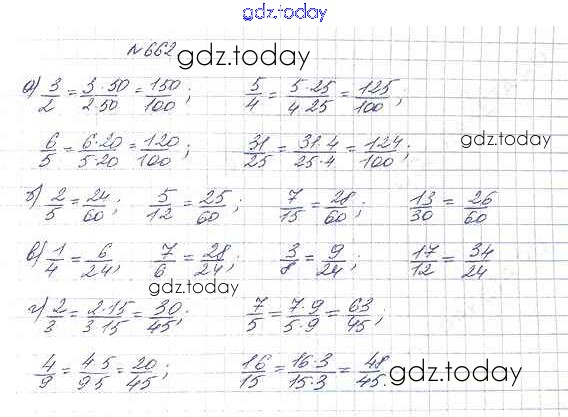 gdz.today
№662 gdz.today
а) 3/2 = 3·50/2·50 = 150/100; 5/4 = 5·25/4 25 = 125/100;
6/5 = 6·20/5·20 = 120/100; 31/25 = 31·4/25·4 = 124/100; gdz.today
б) 2/5 = 24/60; 5/12 = 25/60; 7/15 = 28/60; 13/30 = 26/60
в) 1/4 = 6/24; 7/6 = 28/24; 3/8 = 9/24; 17/12 = 34/24
gdz.today
г) 2/3 = 2·15/3 15 = 30/45; 7/5 = 7·9/5·9 = 63/45;
4/9 = 4 5/9 5 = 20/45; 16/15 = 16·3/15·3 = 48/45. gdz.today